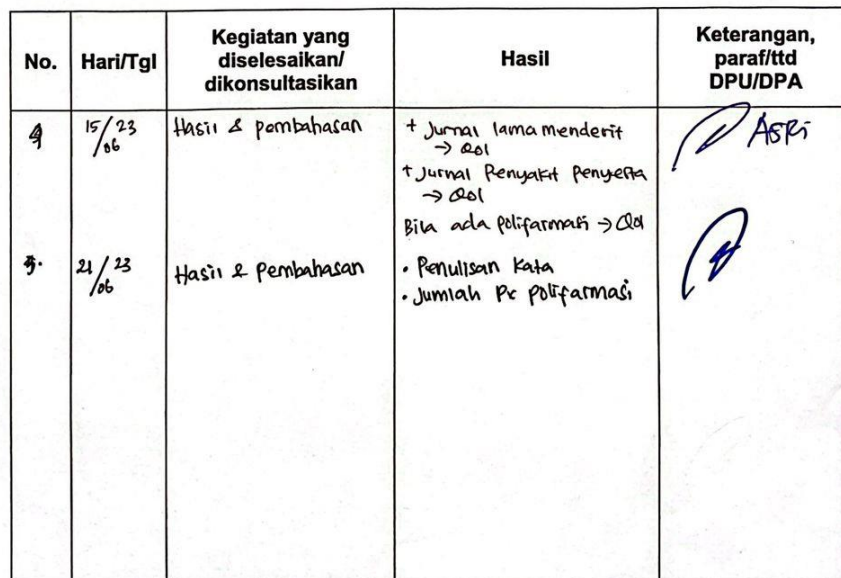 No.
Hari/Tgl
Kegiatan yang
diselesaikan/
dikonsultasikan
Hasil
Keterangan,
paraf/ttd
DPU/DPA
15/06 23
Hasil & pembahasan
+ Jurnal lama menderit
→ QOl
+ Jurnal Penyakit Penyerta
→ QOl
Bila ada polifarmasi → QOl
ASRi
21/06 23
Hasil & Pembahasan
• Penulisan Kata
• Jumlah Px polifarmasi